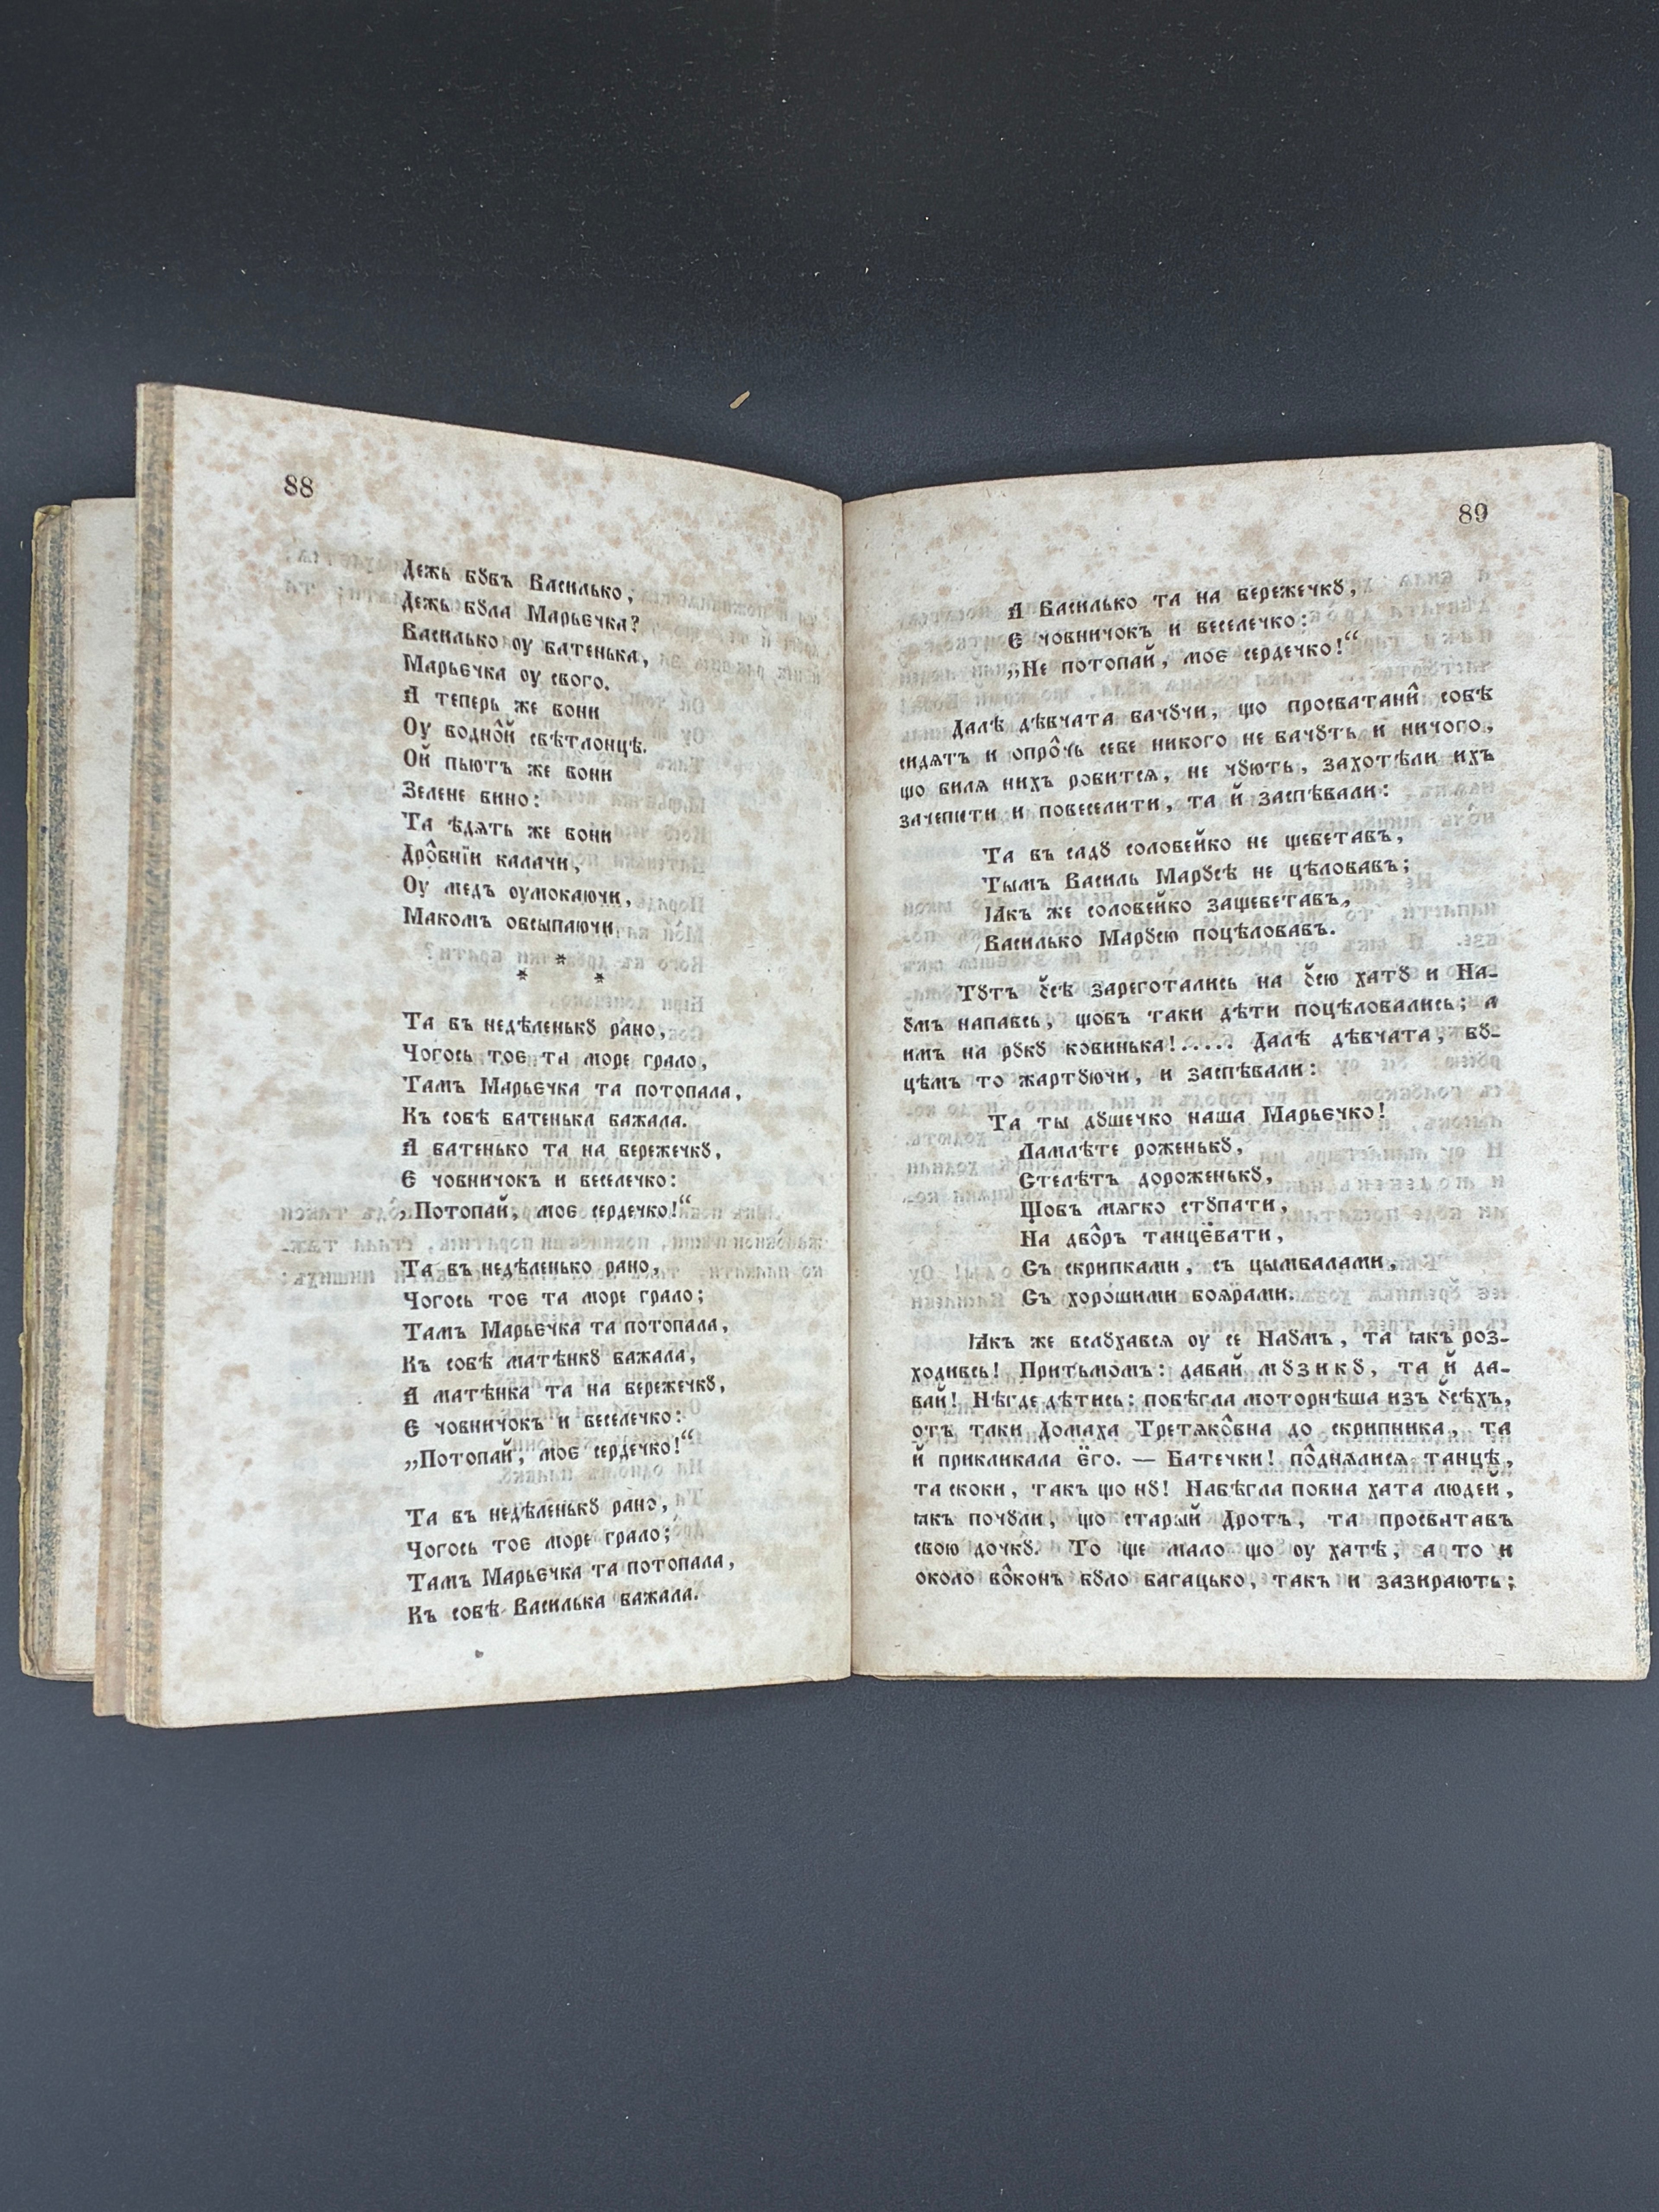 88
Дежь бꙋвъ Василько,
Дежь бꙋла Марьєчка?
Василько оу батенька,
Марьєчка оу свого.
А теперь же вони
Оу воднốй свѣтлонцѣ.
Ой пьютъ же вони
Зелене вино:
Та ѣдять же вони
Дрôбнïи калачи,
Оу медъ оумокаючи,
Макомъ обсыпаючи.
*
* *
Та въ недѣленькꙋ рано,
Чогось тоє та море грало,
Тамъ Марьєчка та потопала,
Къ собѣ батенька бажала.
А батенько та на бережечкꙋ,
Є човничокъ и веселечко:
„Потопай, моє сердечко!“
Та въ недѣленько рано,
Чогось тоє та море грало;
Тамъ Марьєчка та потопала,
Къ собѣ матѣнкꙋ бажала,
А матѣнка та на бережечкꙋ,
Є човничокъ и веселечко:
„Потопай, моє сердечко!“
Та въ недѣленькꙋ рано,
Чогось тоє море грало;
Тамъ Марьєчка та потопала,
Къ собѣ Василька бажала.
89
А Василько та на бережечкꙋ,
Є човничокъ и веселечко:
„Не потопай, моє сердечко!“
Далѣ дѣвчата бачꙋчи, що просватанй собѣ
сидятъ и опрôчь себе никого не бачꙋть и ничого,
що биля нихъ робится, не чꙋють, захотѣли ихъ
зачепити и повеселити, та й заспѣвали:
Та въ садꙋ соловейко не щебетавъ,
Тымъ Василь Марꙋсѣ не цѣловавъ;
Ꙗкъ же соловейко защебетавъ,
Василько Марꙋсю поцѣловавъ.
Тꙋтъ ꙋ̆сѣ зареготались на ꙋ̆сю хатꙋ и На-
ꙋмъ напавсь, щобъ таки дѣти поцѣловались; а
имъ на рꙋкꙋ ковинька!..... Далѣ дѣвчата, бꙋ-
цѣмъ то жартꙋючи, и заспѣвали:
Та ты дꙋшечко наша Марьєчко!
Ламлѣте роженькꙋ,
Стелѣтъ дороженькꙋ,
Щобъ мягко стꙋпати,
На двôръ танцёвати,
Съ скрипками, съ цымбалами,
Съ хорошими боярами.
Ꙗкъ же вслꙋхався оу се Наꙋмъ, та ꙗкъ роз-
ходивсь! Притьмомъ: давай мꙋзикꙋ, та й да-
вай! Нѣгде дѣтись: побѣгла моторнѣша изъ ꙋ̆сѣхъ,
отъ таки Домаха Третякôвна до скрипника, та
й прикликала ёго. — Батечки! пôднялися танцѣ,
та скоки, такъ що нꙋ! Набѣгла повна хата людей,
ꙗкъ почꙋли, що старый Дротъ, та просватавъ
свою дочкꙋ. То ще мало що оу хатѣ, а то и
около вôконъ бꙋло багацько, такъ и зазирають;